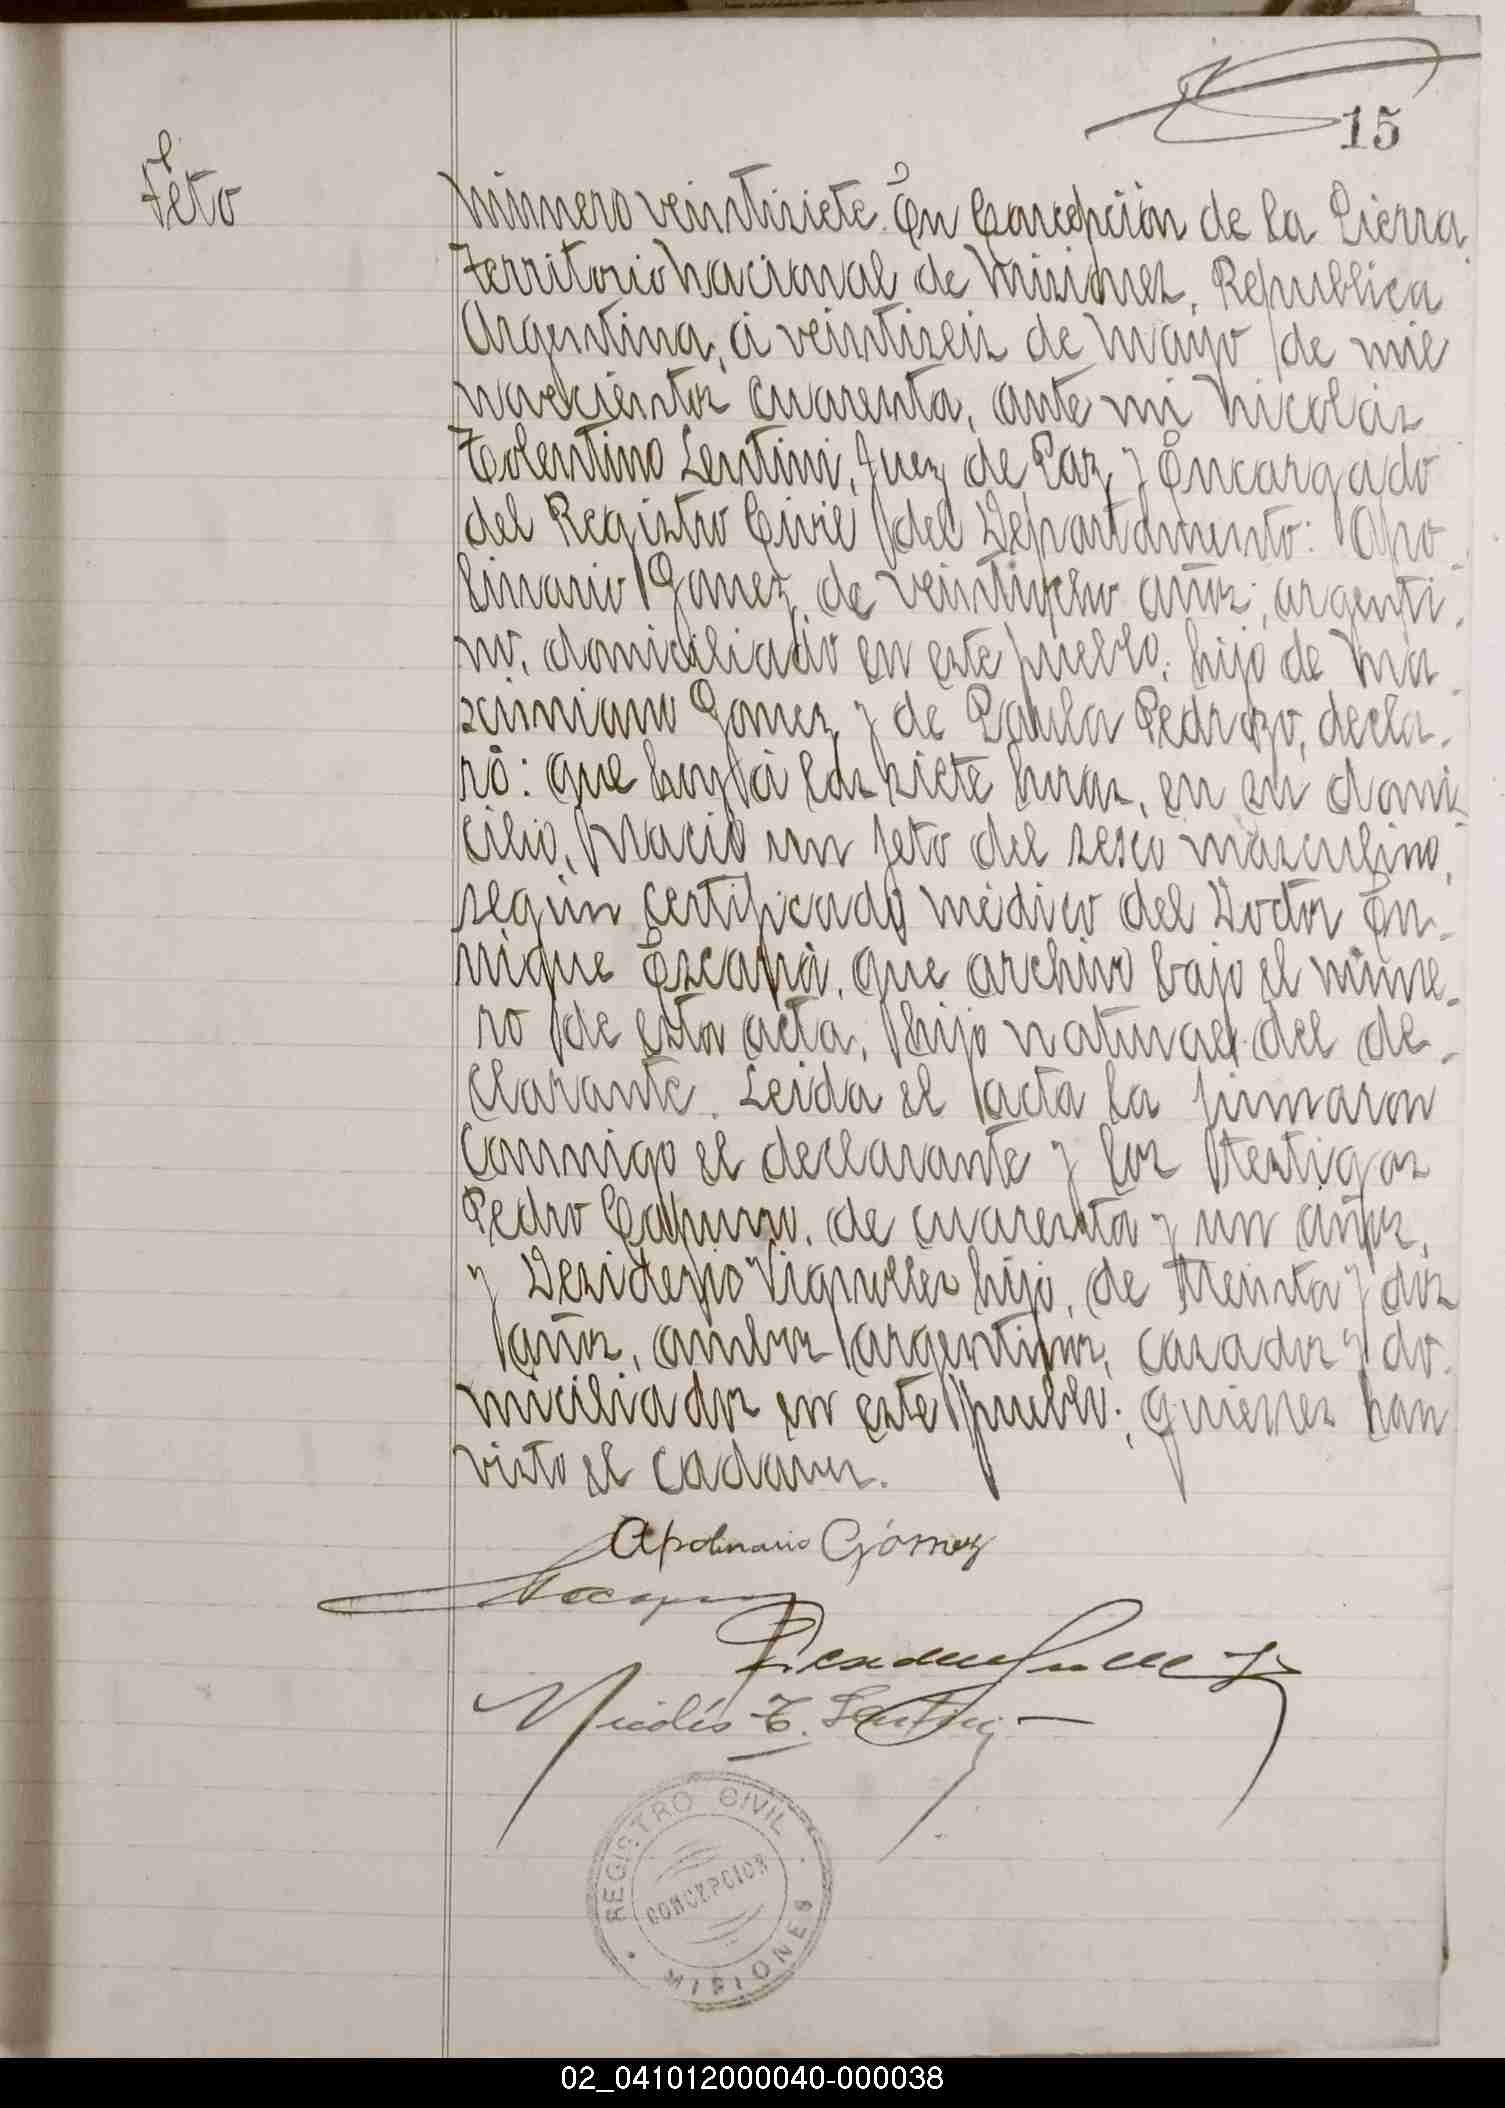 15
Feto
Número veintisiete. En Concepción de la Sierra,
Territorio Nacional de Misiones, Republica
Argentina, á veintiseis de Mayo de mil
novecientos cuarenta, ante mi Nicolás
Tolentino Lentini, Juez de Paz y Encargado
del Registro Civil del Departamento: Apo-
linario Gomez, de veintiocho años; argenti-
no, domiciliado en este pueblo; hijo de Ma-
ximiano Gomez y de Paula Pedrozo, decla-
ró: que hoy á las siete horas, en su domi-
cilio, nació un feto del sexo masculino,
según certificado médico del Doctor En-
rique Escapá, que archivo bajo el núme-
ro de esta acta, hijo natural del de-
clarante. Leida el acta la firmaron
conmigo el declarante y los testigos
Pedro Capurro, de cuarenta y un años,
y Desiderio Vignolles hijo, de treinta y dos
años, ambos argentinos, casados y do-
miciliados en este pueblo; quienes han
visto el cadaver.
Apolinario Gómez
Nicolás T. Lentini
REGISTRO CIVIL
CONCEPCION
MISIONES
02_041012000040-000038